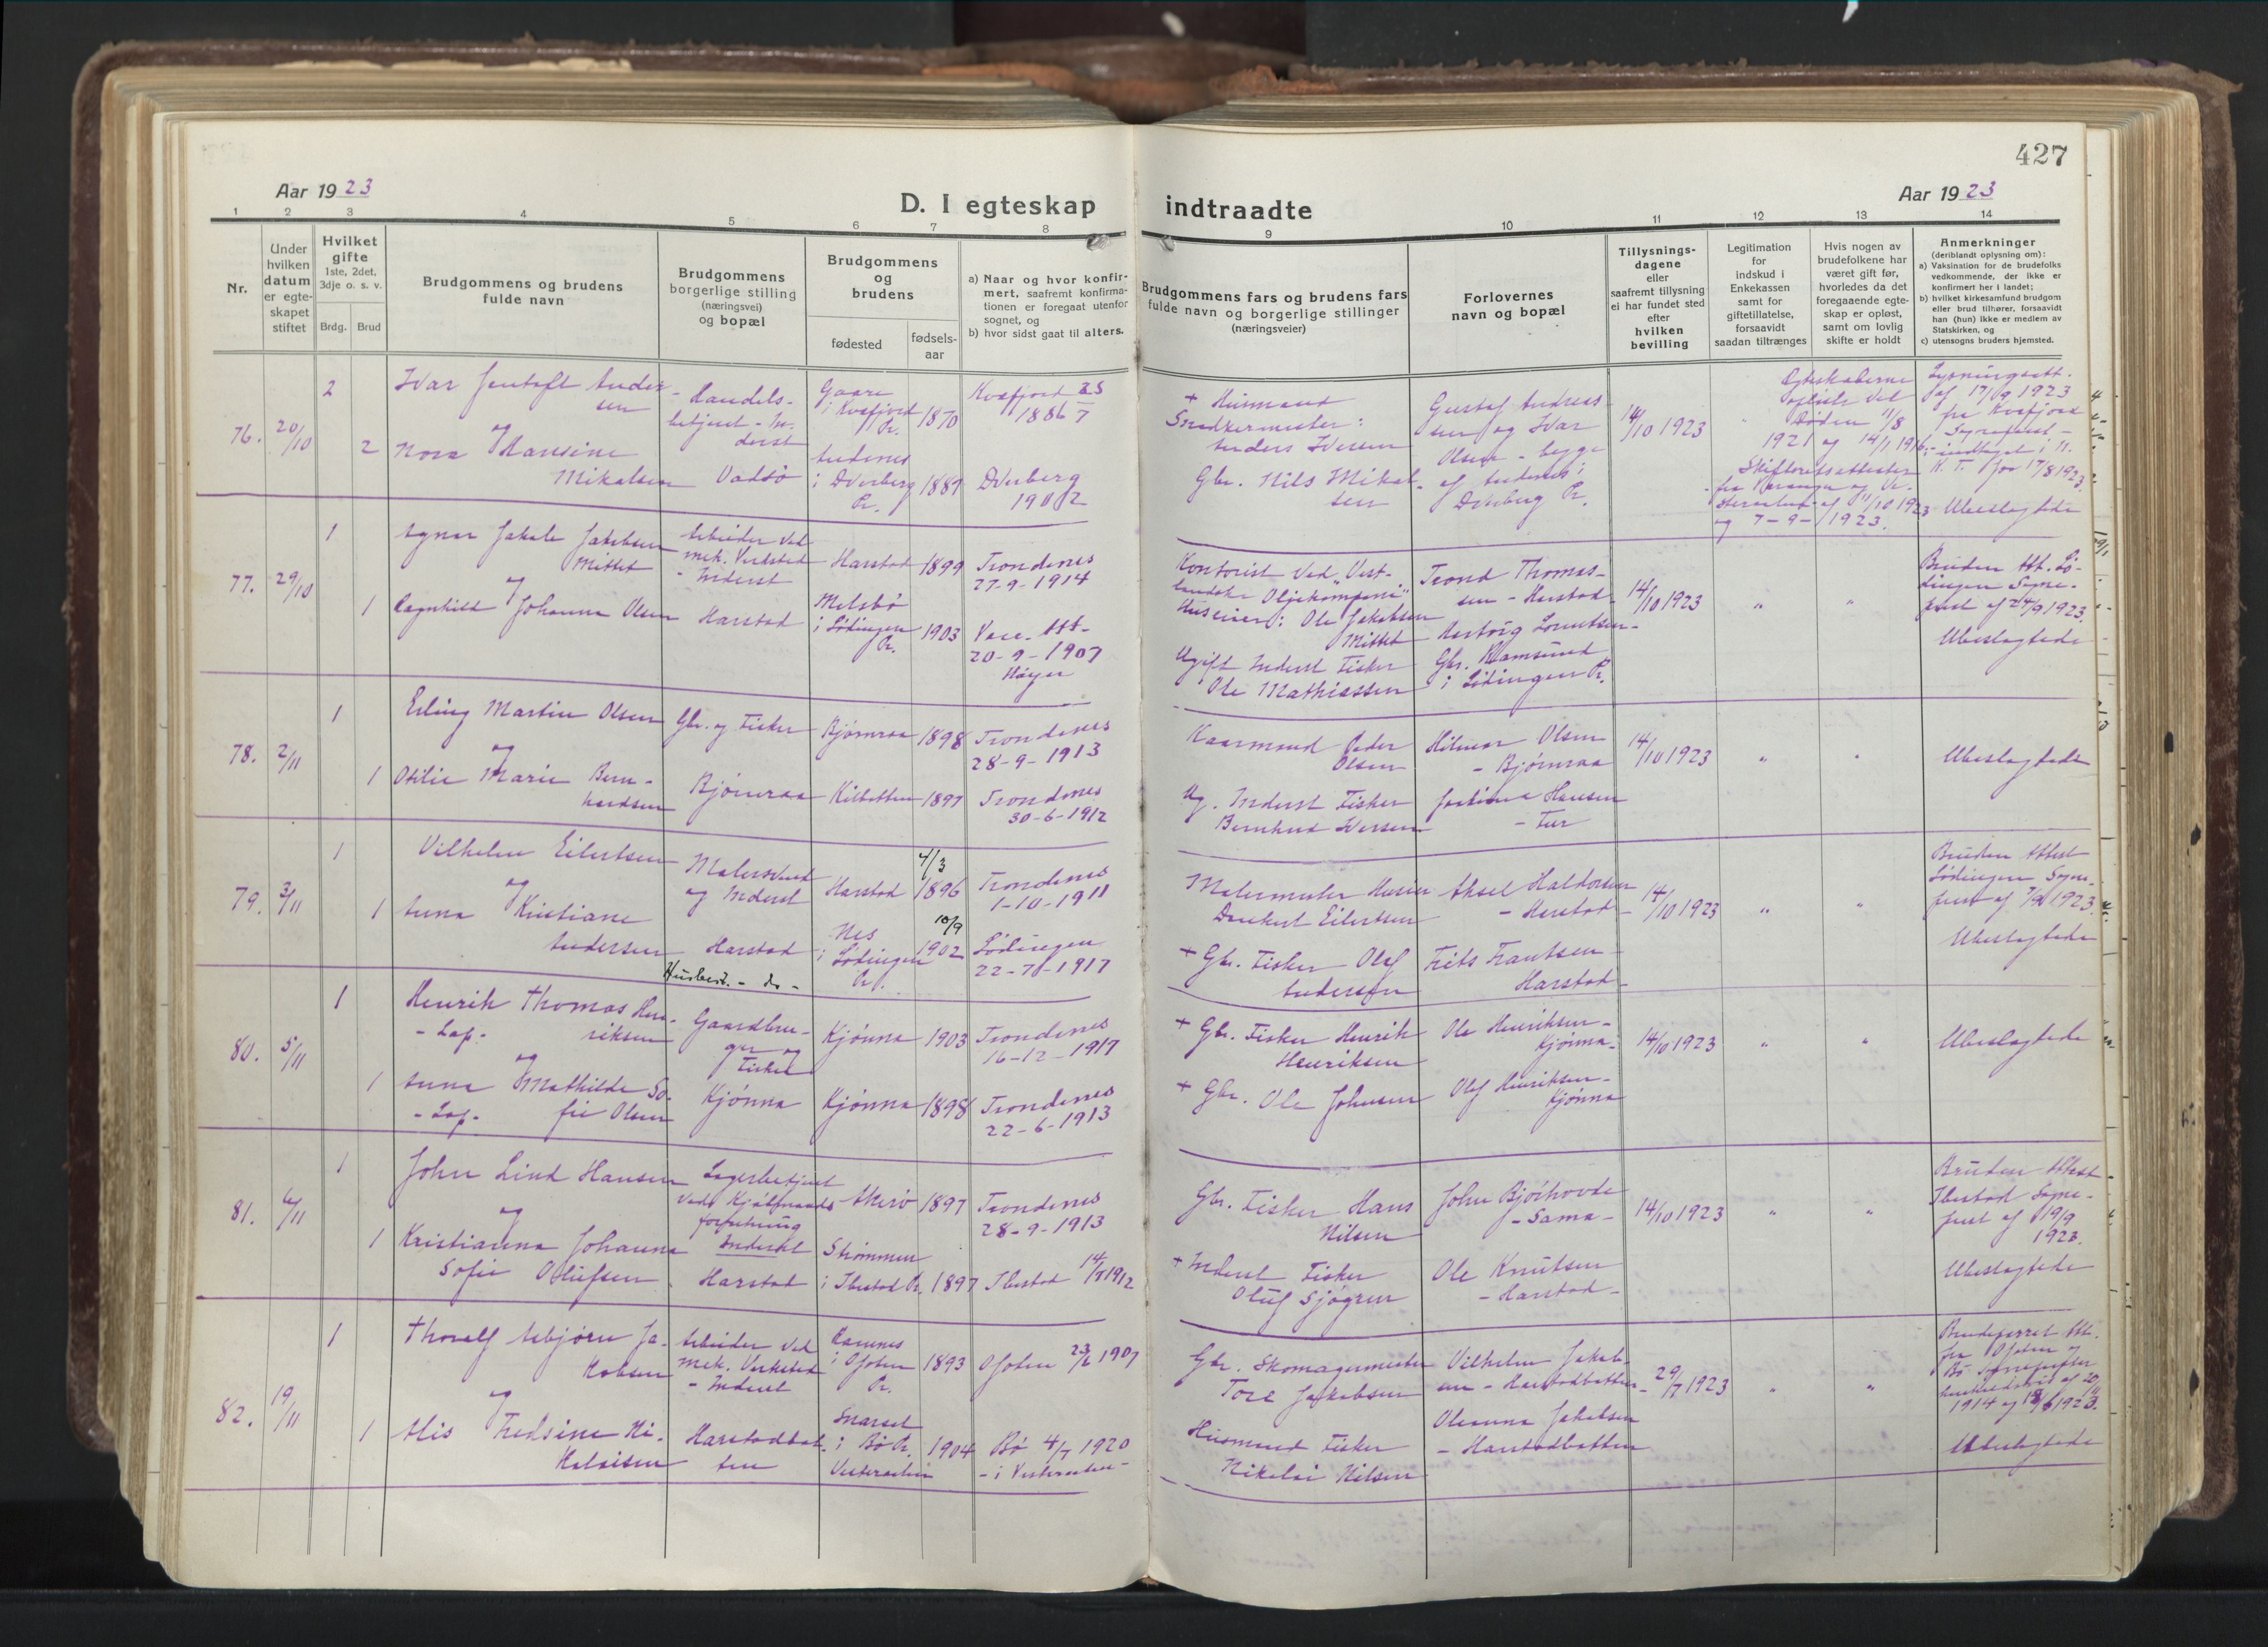 427
Aar 1923
Aar 1923
D. I egteskap indtraadte
1 2 3 4 5 6 7 8 9 10 11 12 13 14
Nr.
Under
hvilken
datum
er egte-
skapet
stiftet
Hvilket
gifte
1ste, 2det,
3dje o. s. v.
Brdg. Brud
Brudgommens og brudens
fulde navn
Brudgommens
borgerlige stilling
(næringsvei)
og bopæl
Brudgommens
og
brudens
fødested
fødsels-
aar
a) Naar og hvor konfir-
mert, saafremt konfirma-
tionen er foregaat utenfor
sognet, og
b) hvor sidst gaat til alters.
Brudgommens fars og brudens fars
fulde navn og borgerlige stillinger
(næringsveier)
Forlovernes
navn og bopæl
Tillysnings-
dagene
eller
saafremt tillysning
ei har fundet sted
efter
hvilken
bevilling
Legitimation
for
indskud i
Enkekassen
samt for
giftetillatelse,
forsaavidt
saadan tiltrænges
Hvis nogen av
brudefolkene har
været gift før,
hvorledes da det
foregaaende egte-
skap er opløst,
samt om lovlig
skifte er holdt
Anmerkninger
(deriblandt oplysning om):
a) Vaksination for de brudefolks
vedkommende, der ikke er
konfirmert her i landet;
b) hvilket kirkesamfund brudgom
eller brud tilhører, forsaavidt
han (hun) ikke er medlem av
Statskirken, og
c) utensogns bruders hjemsted.
76. 20/10
2
Ivar Jentoft Ander-
sen
og
2
Nora Hansine
Mikalsen
Handels-
betjent - In-
derst
Vadsö
Gaare
i Kvæfjord
Pr.
1870
Andenes
i Dverberg
Pr.
1881
Kvæfjord 25
1886 7
Dverberg
1902
+ Husmand
Snedkermester:
Anders Iversen
Gbr. Nils Mikal-
sen
Gustaf Andreas-
sen og Ivar
Olsen - begge
af Andenes i
Dverberg Pr.
14/10 1923
Egteskaberne
opløste ved
Døden 11/8
1921 og 14/1 1916
Skifteretsattester
fra Varanger og
af 11/10 1923
og 7-9-1923.
Lysningsatt.
af 17/9 1923
fra Kvæfjord
Sogneprest -
indtaget i N.
K. T. for 17/8 1923.
Ubeslegtede
77. 29/10
1
Agnar Jakob Jakobsen
Mittet
og
1
Ragnhild Johanna Olsen
Arbeider ved
mek. Verksted
- Inderst
Harstad
Harstad 1899
Melsbö
i Lödingen
Pr.
1903
Trondenes
27-9-1914
Vacc. Att.
20-9-1907
Høyer
Kontorist ved „Vest-
landske Oljekompani"
Huseier: Ole Jakobsen
Mittet
Ugift Inderst Fisker
Ole Mathiassen
Trond Thomas-
sen - Harstad
Lorentsen -
Gbr. Ramsund
i Lödingen Pr.
14/10 1923
„ „
Bruden Att. Lö-
dingen Sogne-
prest af 24/9 1923.
Ubeslegtede
78. 2/11
1
Erling Martin Olsen
og
1
Otilie Marie Bern-
hardsen
Gbr. og Fisker
Bjørnraa
Bjørnraa 1898
Kilbotten 1897
Trondenes
28-9-1913
Trondenes
30-6-1912
Kaarmand Peder
Olsen
Ug. Inderst Fisker
Bernhard Iversen
Hilmar Olsen
- Bjørnraa
Hansen
14/10 1923
„ „
Ubeslegtede
79. 3/11
1
Vilhelm Eilertsen
og
1
Anna Kristiane
Andersen
Malersvend
og Inderst
Harstad
Husbest. - do -
Harstad
4/3
1896
Nes
i Lödingen
Pr.
10/9
1902
Trondenes
1-10-1911
Lödingen
22-7-1917
Malermester Husier
Eilertsen
+ Gbr. Fisker Olaf
Andersen
Aksel Haldorsen
- Harstad -
Frits Frantsen
Harstad -
14/10 1923
„ „
Bruden Attest
Lödingen Sogne-
prest af 7/9 1923.
Ubeslegtede
80. 5/11
1
Henrik Thomas Hen-
- Lap. riksen
og
1
Anna Mathilde So-
- Lap. fie Olsen
Gaardbru-
ger og
Fisker
Kjönna
Kjönna 1903
Kjönna 1898
Trondenes
16-12-1917
Trondenes
22-6-1913
+ Gbr. Fisker Henrik
Henriksen
+ Gbr. Ole Johnsen
Ole Henriksen -
Kjönna -
Olaf Henriksen -
Kjönna
14/10 1923
„ „
Ubeslegtede
81. 6/11
1
John Lind Hansen
og
1
Kristianna Johanna
Sofie Olufsen
Lagerbetjent
ved Kjöbmands
forretning
Inderst
Harstad
Akerö 1897
Strömmen
i Ibestad Pr. 1897
Trondenes
28-9-1913
Ibestad 14/7 1912
Gbr. Fisker Hans
Nilsen
+ Inderst Fisker
Oluf Sjögren
John Bjørhovde
- Sama -
Ole Knutsen
- Harstad -
14/10 1923
„ „
Bruden Attest
Ibestad Sogne-
prest af 19/9
1923.
Ubeslegtede
82. 19/11
1
Thoralf Asbjörn Ja-
kobsen
og
1
Alis Fredsine Ni-
kolaisen
Arbeider ved
mek. Verksted
- Inderst
Harstadbot-
ten
Ramnes
i Ofoten
Pr.
1893
Snarset
i Bö Pr.
Vesteraalen
1904
Ofoten 23/6 1907
Bö 4/7 1920
- i Vesteraalen -
Gbr. Skomagermester
Tore Jakobsen
Husmand Fisker
Nikolai Nilsen
Vilhelm Jakob-
sen - Harstadbotten -
Oleanna Jakobsen
- Harstadbotten
29/7 1923
„ „
Brudeparret Att.
fra Ofoten og
Bö Sogneprester
henholdsvis af 20/11
1914 og 18/6 1923.
Ubeslegtede